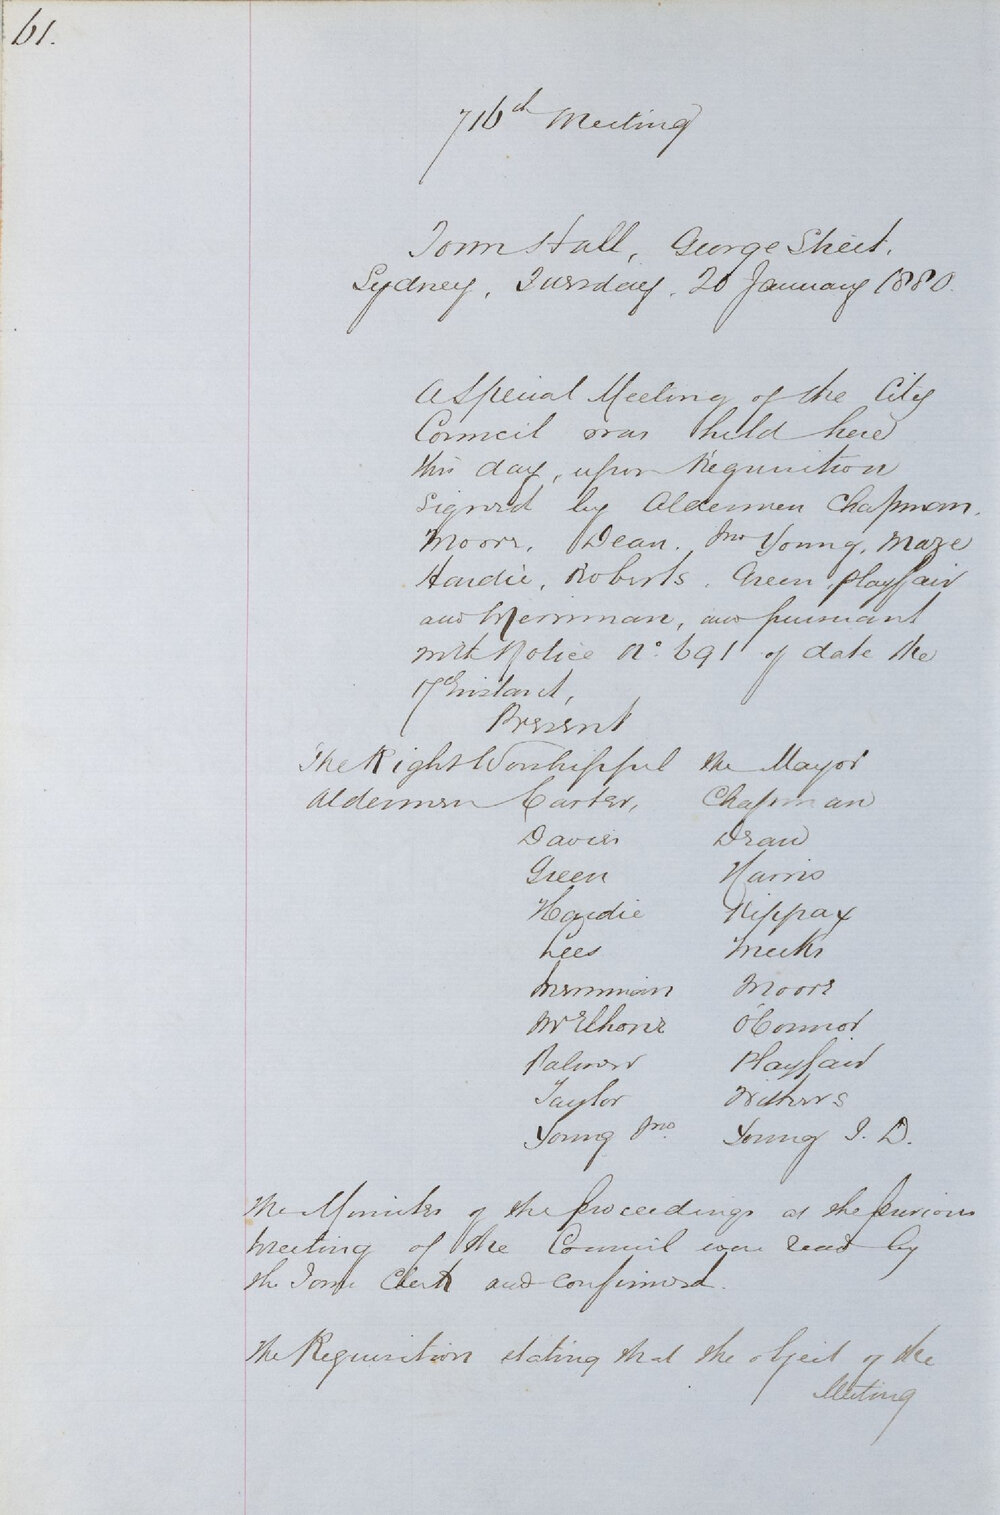 61.
716th Meeting
Town Hall, George Street.
Sydney, Tuesday, 20 January 1880.
A Special Meeting of the City
Council was held here
this day, upon Requisition
signed by Aldermen Chapman,
Moore, Dean, Jno Young, Maze
Hardie, Roberts, Green, Playfair
and Merriman, and pursuant
with Notice No. 691 of date the
17th instant,
Present
The Right Worshipful the Mayor
Aldermen Carter, Chapman
Davies Dean
Green Harris
Hardie Kippax
Lees Meeks
Merriman Moore
McElhone O'Connor
Palmer Playfair
Taylor Withers
Young Jno. Young J. D.
The Minutes of the proceedings at the previous
Meeting of the Council were read by
the Town Clerk and confirmed.
The Requisition stating that the object of the
Meeting